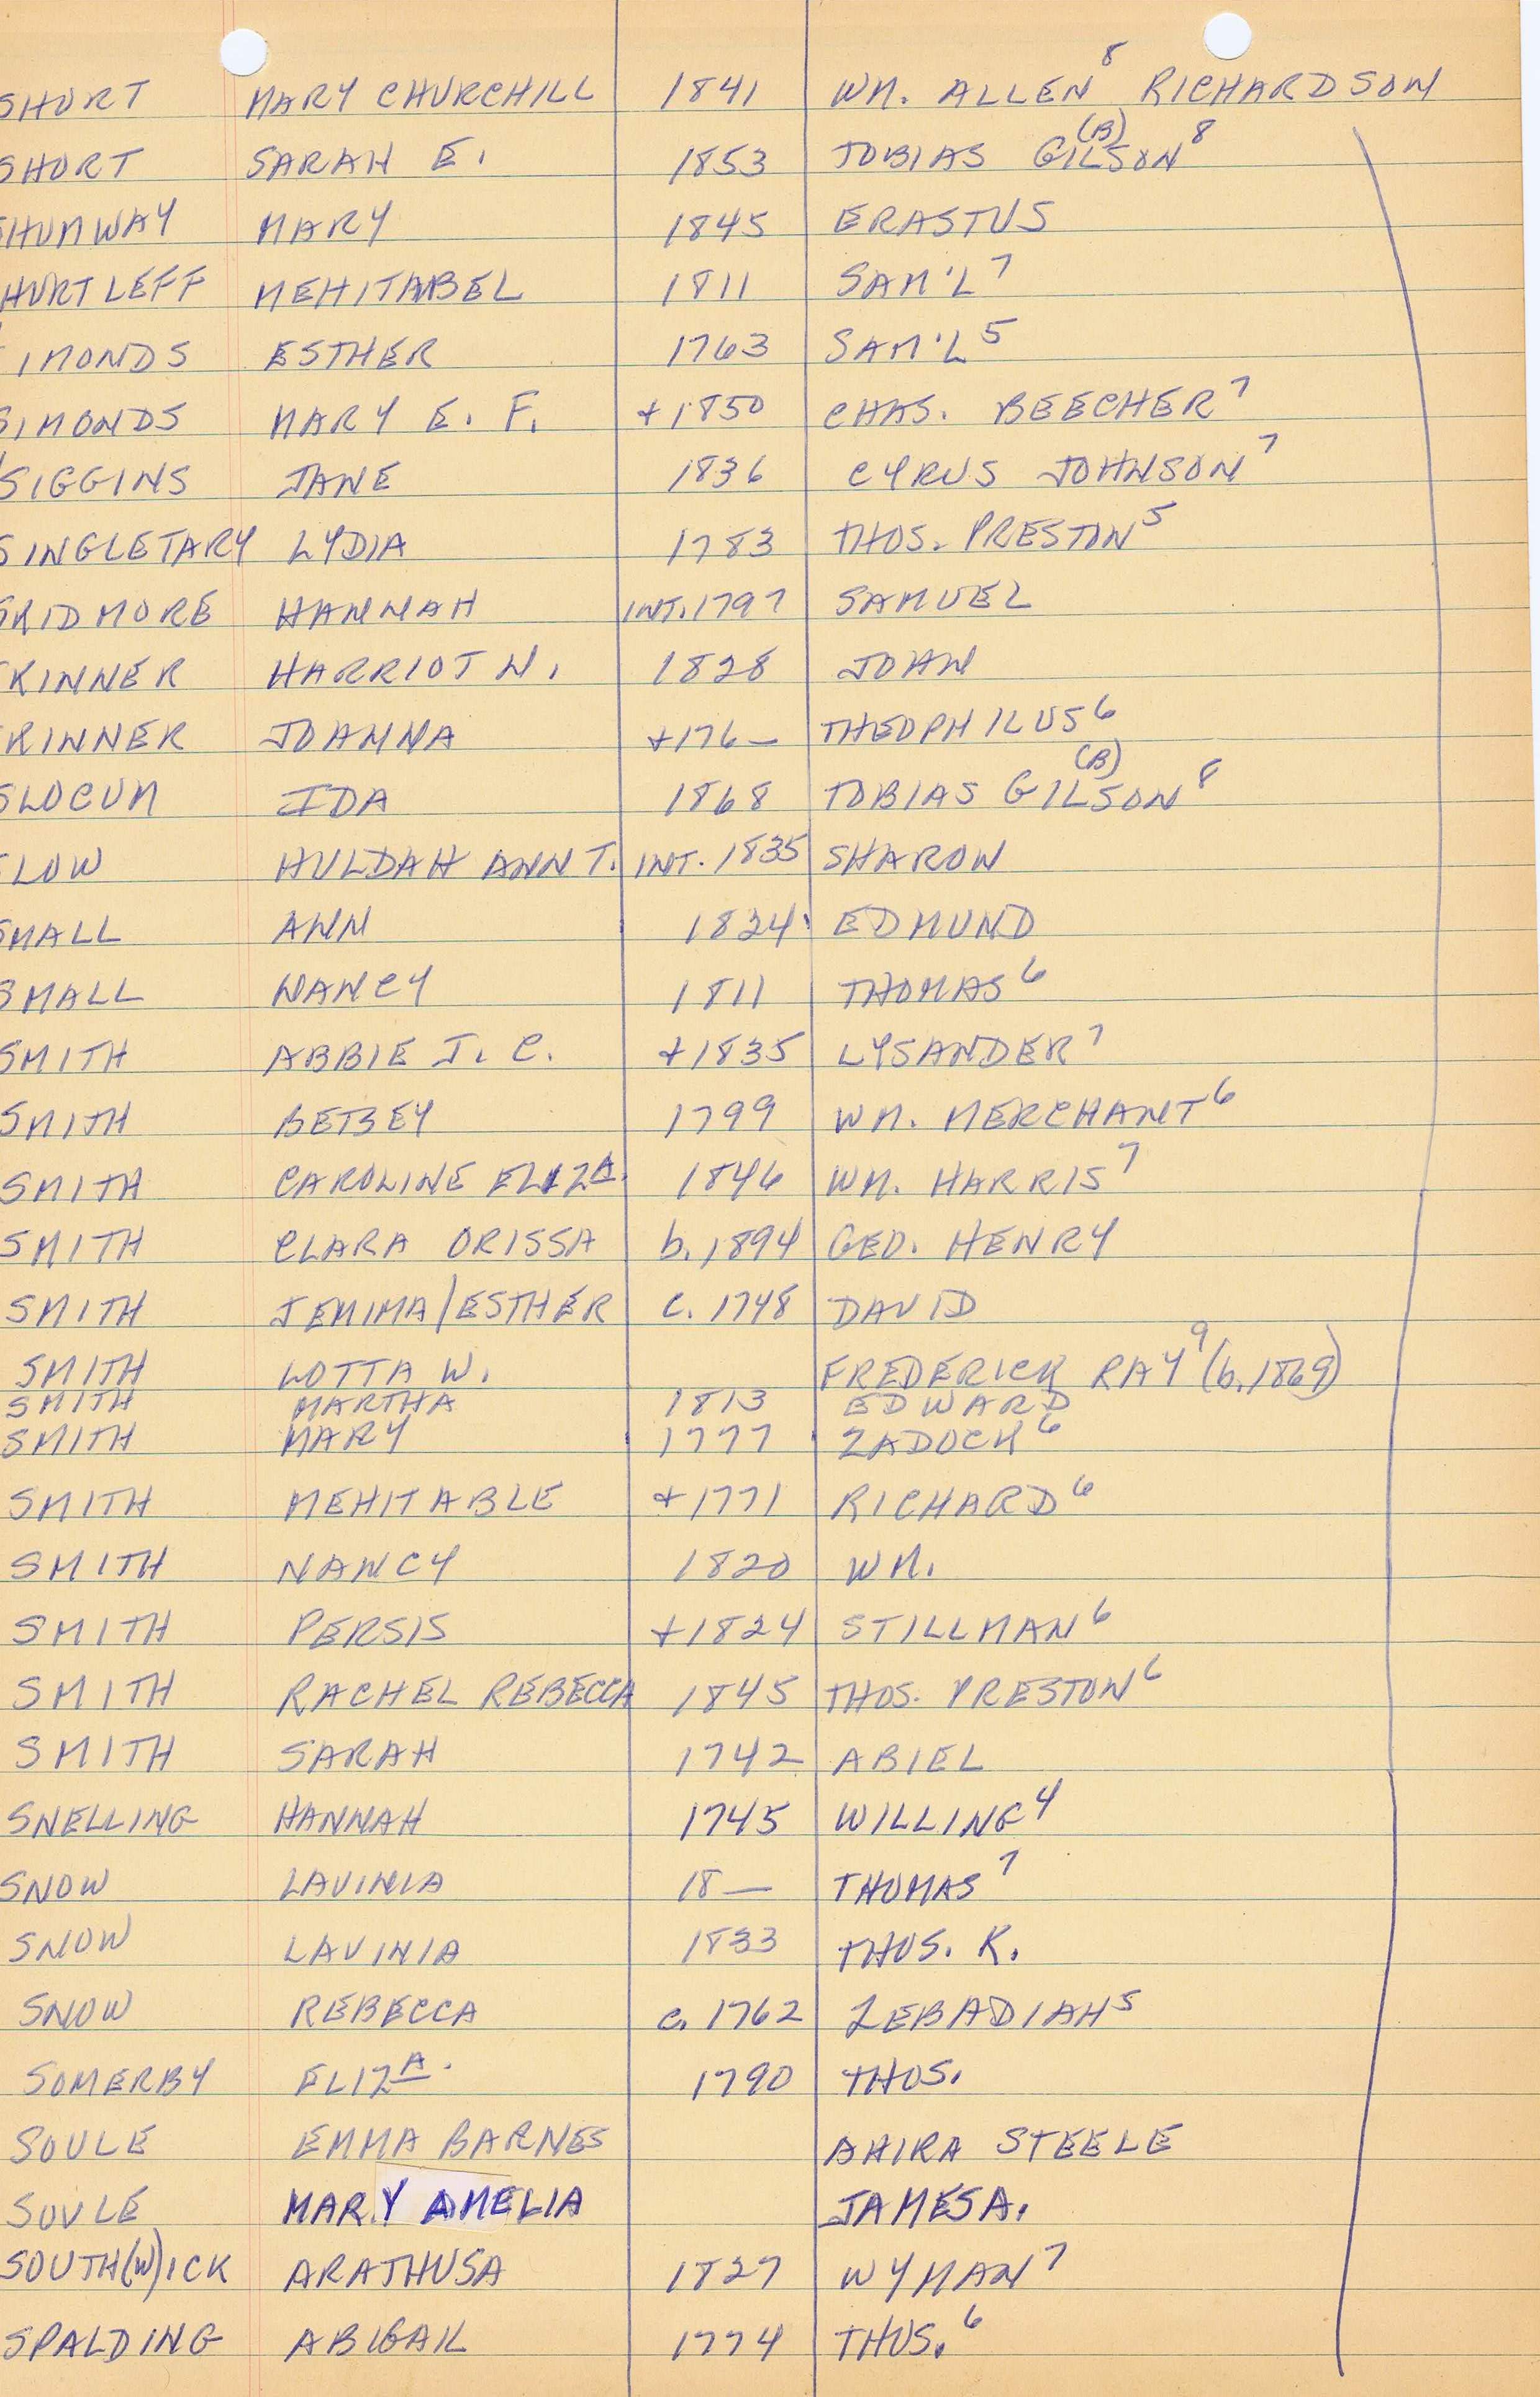 SHORT MARY CHURCHILL 1841 WM. ALLEN⁸ RICHARDSON
SHORT SARAH E. 1853 TOBIAS GILSON⁸ (B)
SHUMWAY MARY 1845 ERASTUS
HURTLEFF MEHITABEL 1811 SAM'L⁷
IMONDS ESTHER 1763 SAM'L⁵
SIMONDS MARY E. F. +1850 CHAS. BEECHER⁷
SIGGINS JANE 1836 CYRUS JOHNSON⁷
SINGLETARY LYDIA 1783 THOS. PRESTON⁵
SKIDMORE HANNAH INT. 1797 SAMUEL
KINNER HARRIOT W. 1828 JOHN
KINNER JOANNA +176— THEOPHILUS⁶
SLOCUM IDA 1868 TOBIAS GILSON⁸ (B)
LOW HULDAH ANN T. INT. 1835 SHARON
SMALL ANN 1824 EDMUND
SMALL NANCY 1811 THOMAS⁶
SMITH ABBIE J. C. +1835 LYSANDER⁷
SMITH BETSEY 1799 WM. MERCHANT⁶
SMITH CAROLINE ELIZᴬ. 1846 WM. HARRIS⁷
SMITH CLARA ORISSA b. 1894 GEO. HENRY
SMITH JEMIMA/ESTHER c. 1748 DAVID
SMITH LOTTA W. FREDERICK RAY⁹ (b. 1869)
SMITH MARTHA 1813 EDWARD
SMITH MARY 1777 ZADOCK⁶
SMITH MEHITABLE +1771 RICHARD⁶
SMITH NANCY 1820 WM.
SMITH PERSIS +1824 STILLMAN⁶
SMITH RACHEL REBECCA 1845 THOS. PRESTON⁶
SMITH SARAH 1742 ABIEL
SNELLING HANNAH 1745 WILLING⁴
SNOW LAVINIA 18— THOMAS⁷
SNOW LAVINIA 1833 THOS. K.
SNOW REBECCA c. 1762 ZEBADIAH⁵
SOMERBY ELIZᴬ. 1790 THOS.
SOULE EMMA BARNES AHIRA STEELE
SOULE MARY AMELIA JAMES A.
SOUTH(W)ICK ARATHUSA 1827 WYMAN⁷
SPALDING ABIGAIL 1774 THOS.⁶